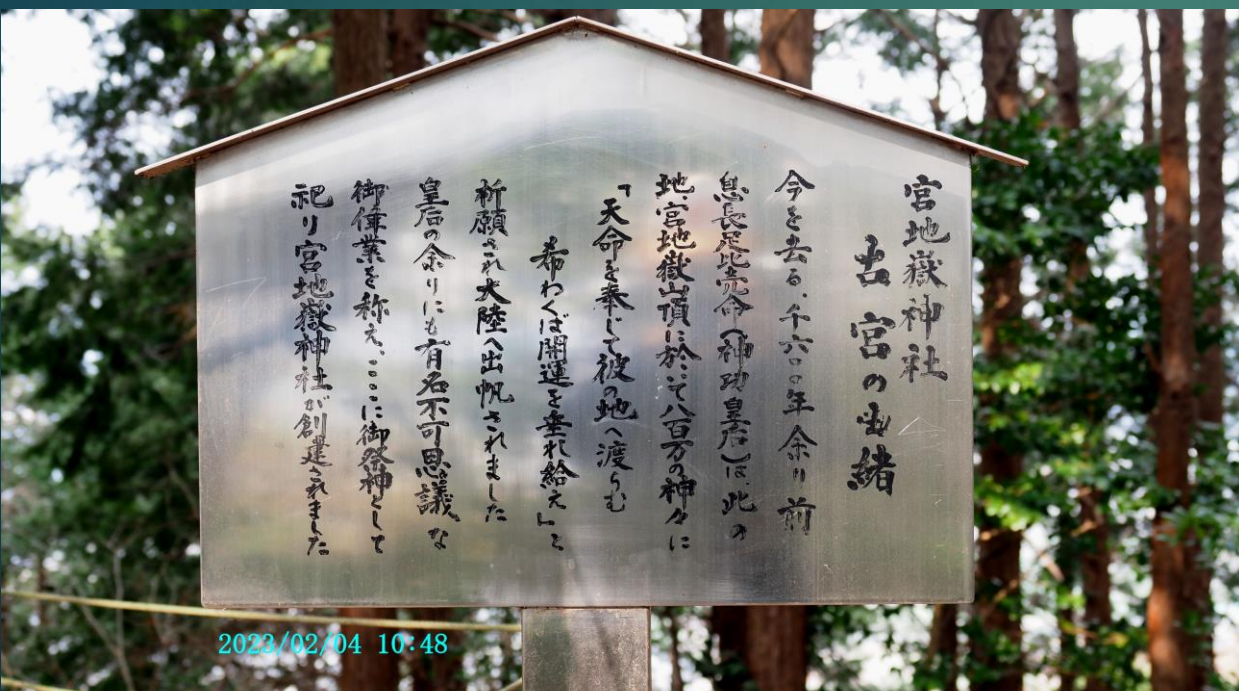 宮地嶽神社
古宮の由緒
今を去る、千六〇〇年余り前
息長足比売命(神功皇后)は、此の
地、宮地嶽山頂に於いて八百万の神々に
「天命を奉じて彼の地へ渡らむ
希わくば開運を垂れ給え」と
祈願され大陸へ出帆されました
皇后の余りにも有名不可思議な
御偉業を称え、ここに御祭神として
祀り宮地嶽神社が創建されました
2023/02/04 10:48